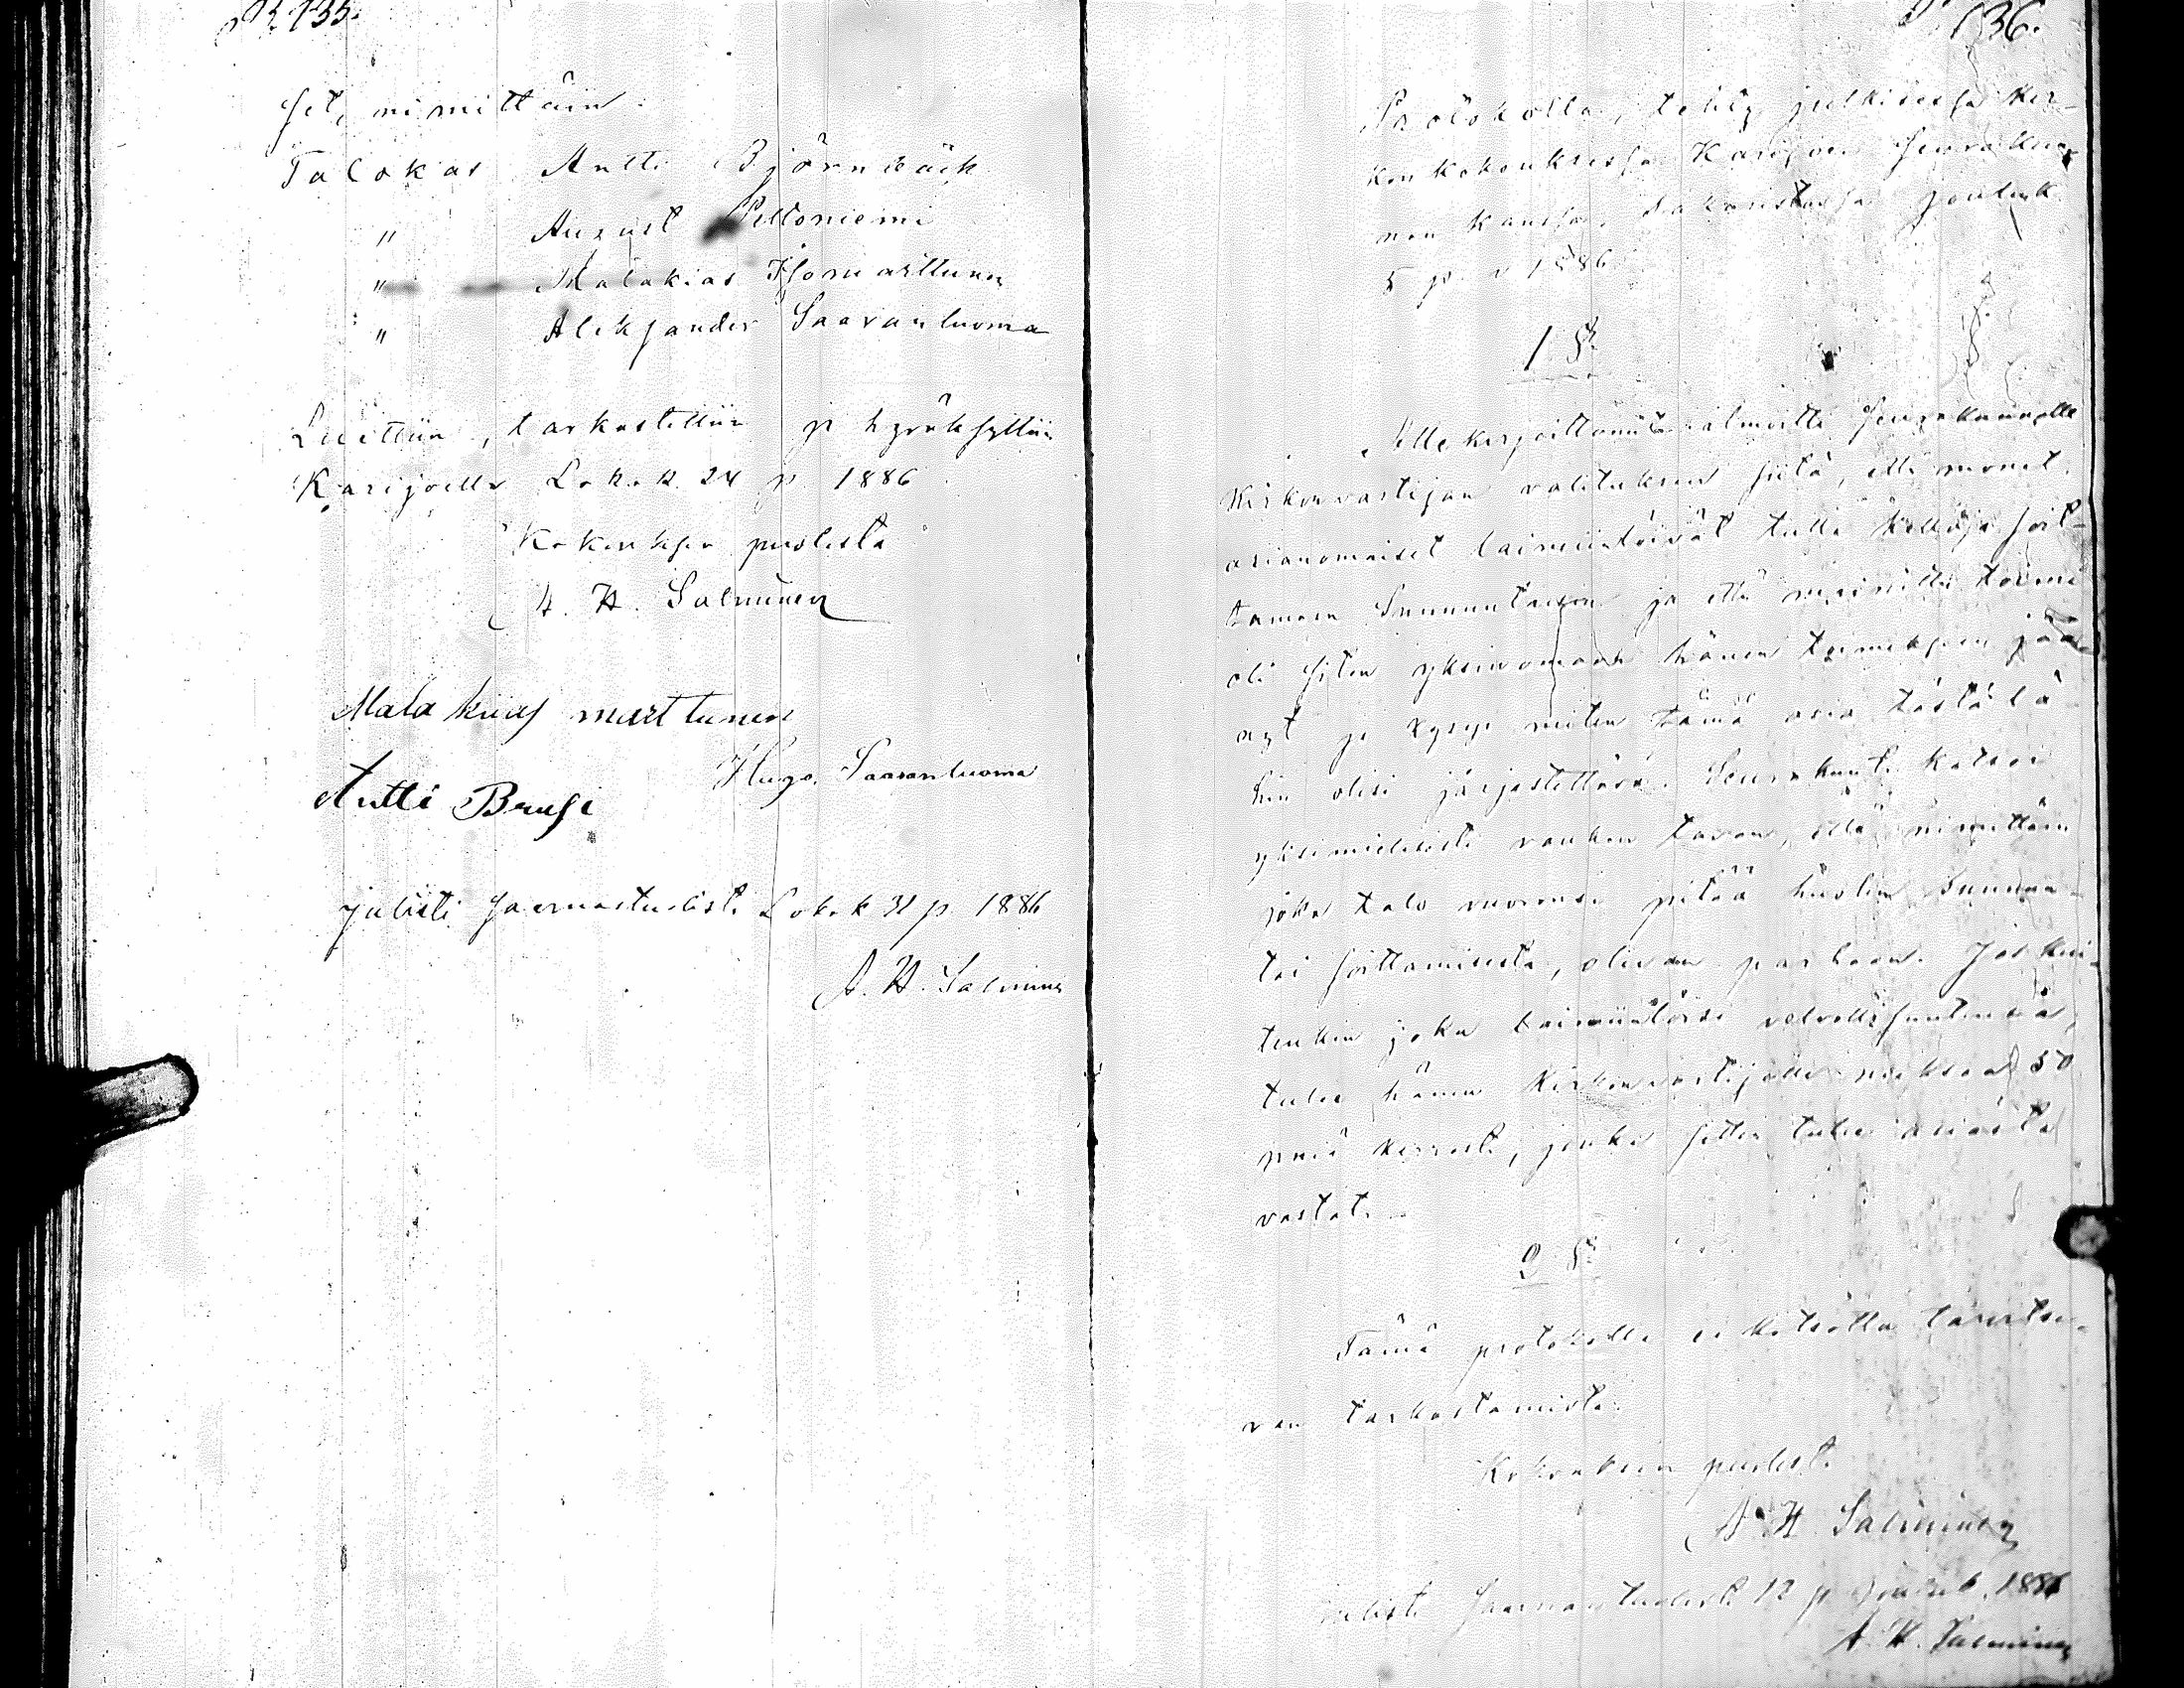 135.
set, nimittäin:
Talokas Antti Björnbäck
" August Peltoniemi
" Malakias Isomarttunen
" Aleksander Saaranluoma
Luettiin, tarkastettiin ja hyväksyttiin
Karijoella Lokak. 24 p. 1886.
Kokouksen puolesta
A. H. Salminen
Malakias marttunen
Hugo Saaranluoma
Antti Brusi
Julisti saarnastuolista Lokak 31 p. 1886
A. H. Salminen
136.
Protokolla, tehty julkisessa kir-
kon kokouksessa Karijoen seurakun-
nan kanssa, sakaristossa Jouluk.
5 p. v 1886.
1 §.
Allekirjoittanut ilmoitti seurakunnalle
kirkonvartijan valituksen siitä, että monet
asianomaiset laiminlöivät tulla kelloja soit-
tamaan Sunnuntaisin ja että mainittu toimi
oli siten yksinomaan hänen toimeksensa jää-
nyt ja kysyi miten tämä asia tästälä-
hin olisi järjestettävä. Seurakunta katsoi
yksimielisesti vanhan tavan, että nimittäin
joka talo vuoronsa pitää huolen Sunnun-
tai soittamisesta, olevan parhaan. Jos kui-
tenkin joku laiminlöisi velvollisuutensa,
tulee hänen kirkonvartijalle maksaa 50
peniä kerrasta, jonka sitten tulee asiasta
vastata.
2 §.
Tämä protokolla ei katsottu tarvitse-
van tarkastamista.
Kokouksen puolesta
A. H. Salminen
Julisti saarnastuolista 12 p Jouluk. 1886
A. H. Salminen